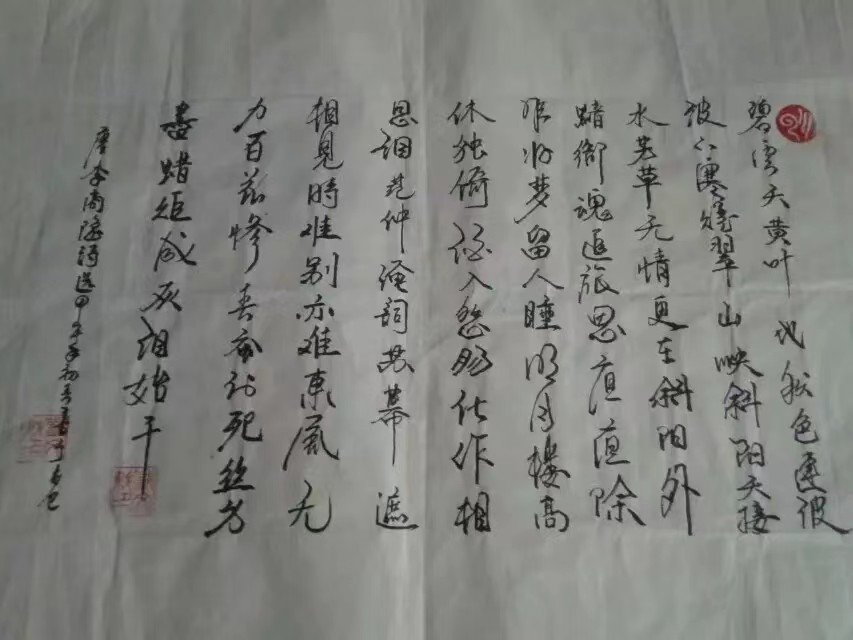 碧雲天黄叶地秋色連
波上寒煙翠山映斜阳天接
水芳草无情更在斜阳外
黯鄉魂追旅思夜夜除
非好梦留人睡明月楼高
休独倚酒入愁肠化作相
思泪范仲淹詞苏幕遮
相見時难别亦难東風无
力百花惨春蚕到死丝方
尽蜡炬成灰泪始干
唐李商隐詩選甲午年初